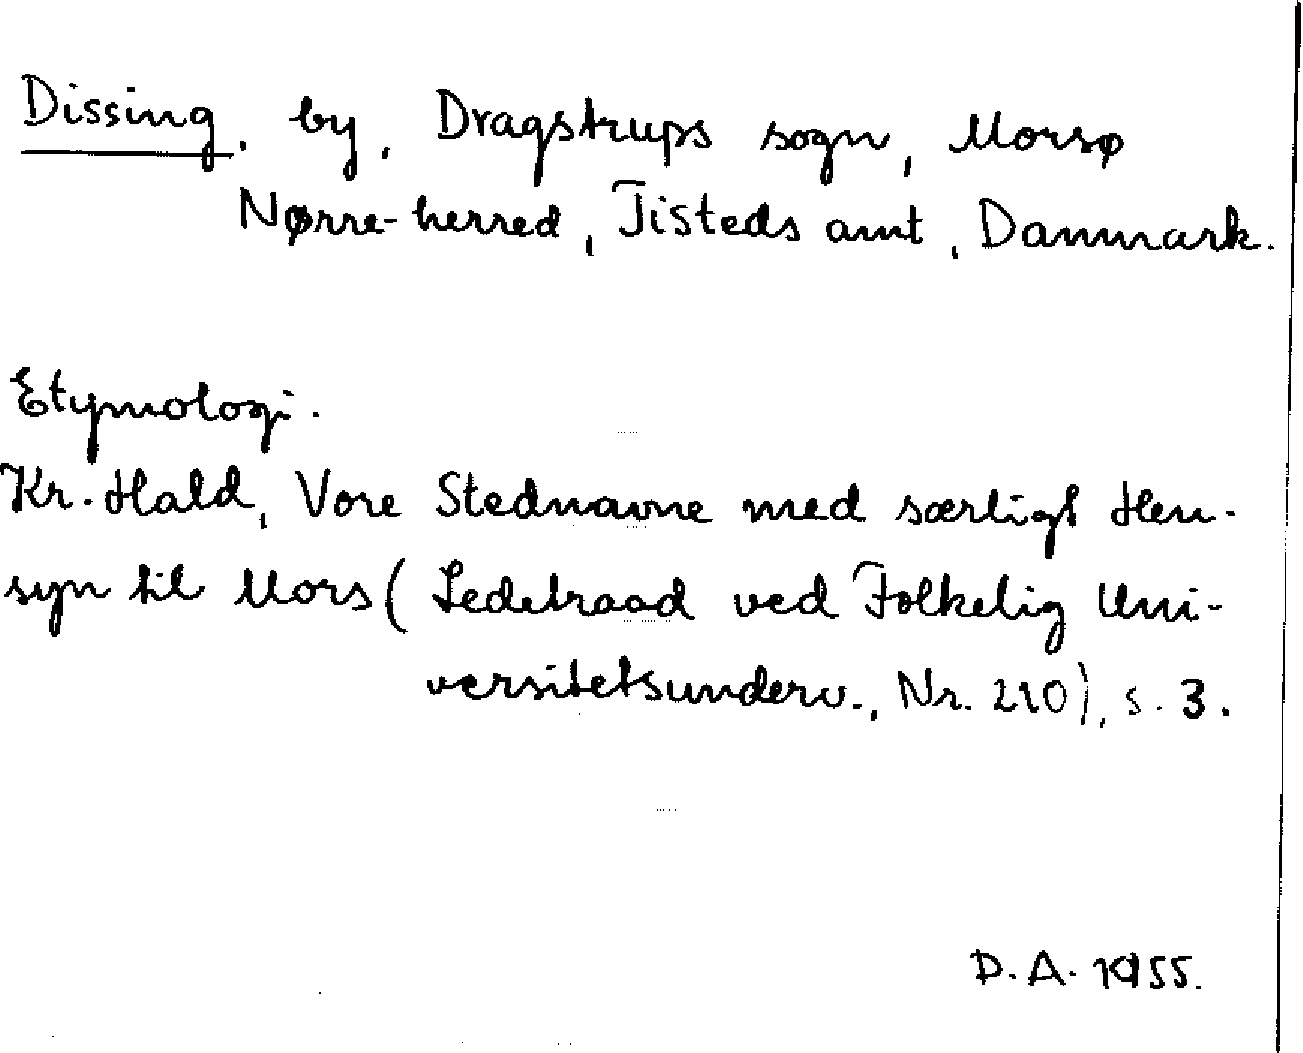 Dissing, by, Dragstrups sogn, Morsø
Nørre-herred, Tisteds amt, Danmark.
Etymologi.
Kr. Hald, Vore Stednavne med særligt Hen-
syn til Mors (Ledetraad ved Folkelig Uni-
versitetsunderv., Nr. 210), s. 3.
D. A. 1955.